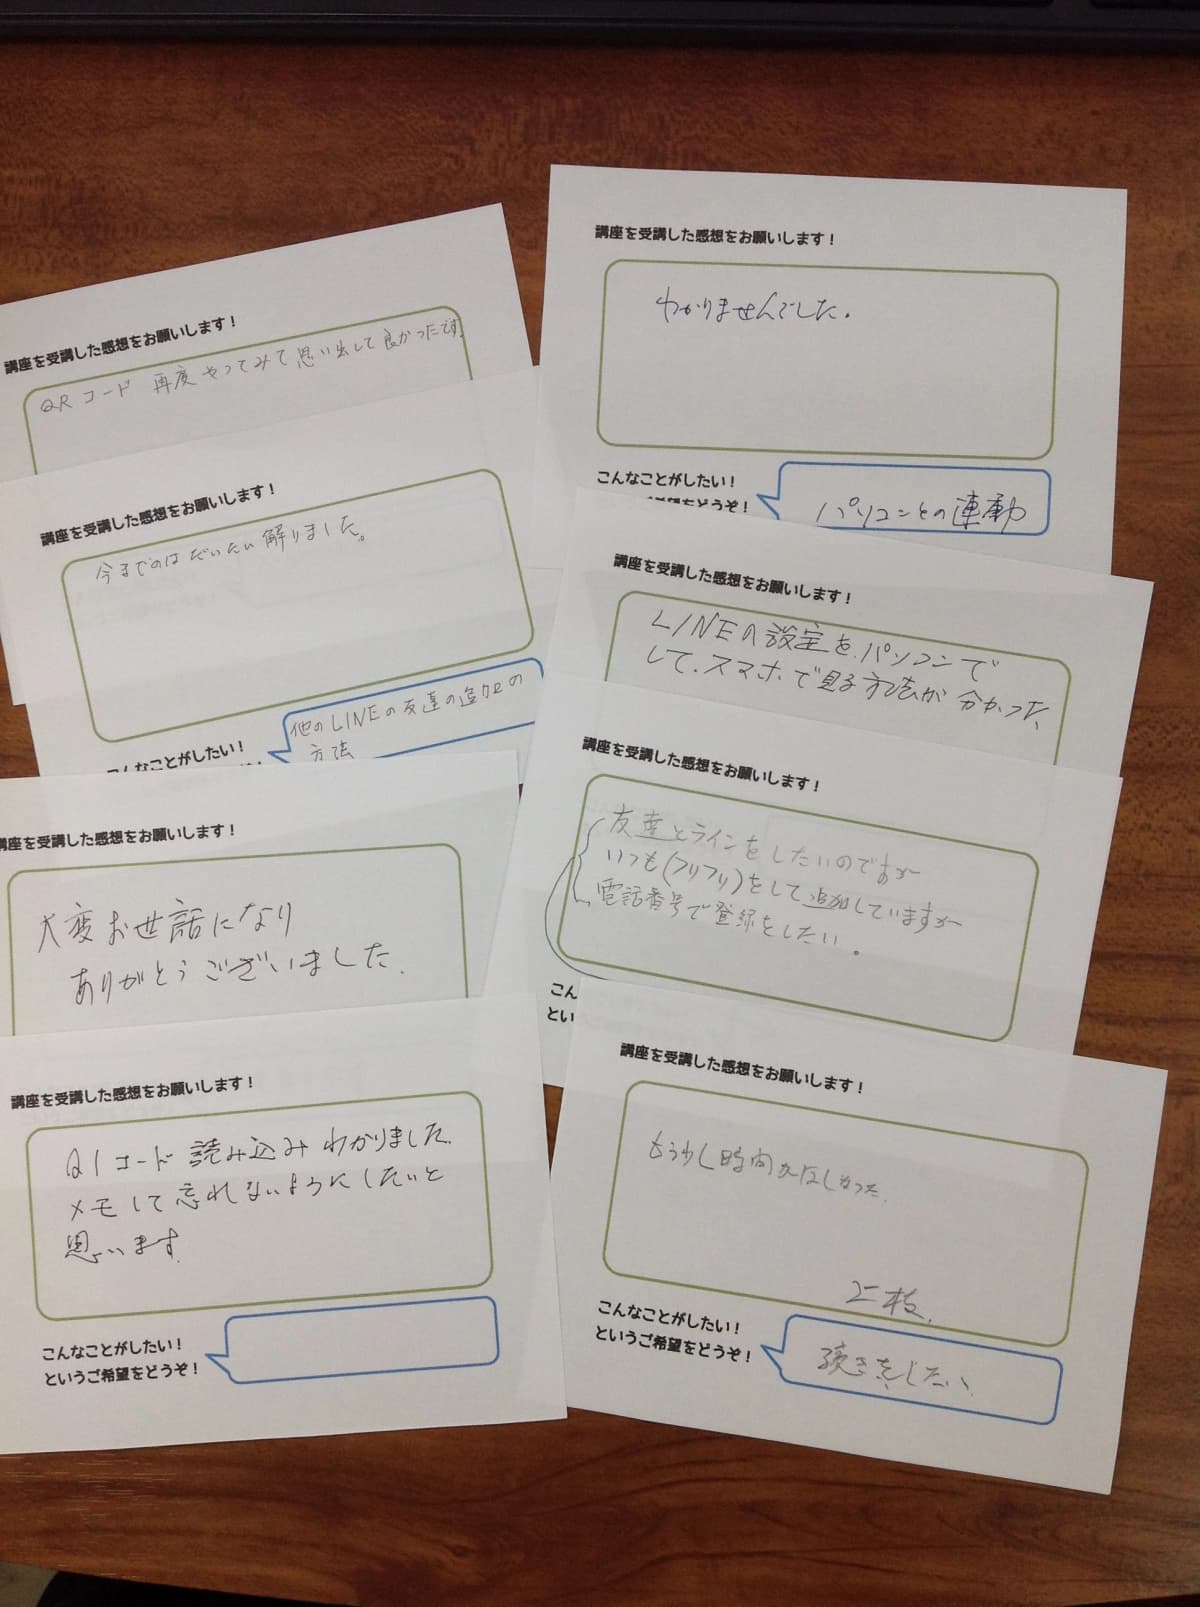 講座を受講した感想をお願いします！
QRコード 再度やってみて思い出して良かったです。
講座を受講した感想をお願いします！
今までのはだいたい解りました。
こんなことがしたい！
他のLINEの友達の追加の
方法
講座を受講した感想をお願いします！
大変お世話になり
ありがとうございました.
講座を受講した感想をお願いします！
QIコード 読み込みわかりました.
メモして忘れないようにしたいと
思います.
こんなことがしたい！
というご希望をどうぞ！
講座を受講した感想をお願いします！
わかりませんでした。
こんなことがしたい！
ご希望をどうぞ！
パソコンとの連動
講座を受講した感想をお願いします！
LINEの設定を.パソコンで
して.スマホで見る方法が分かった.
講座を受講した感想をお願いします！
友達とラインをしたいのですが
いつも(フリフリ)をして追加していますが
電話番号で登録をしたい。
こん
とい
講座を受講した感想をお願いします！
もう少し時間がほしかった.
こんなことがしたい！
というご希望をどうぞ！
続きをしたい.